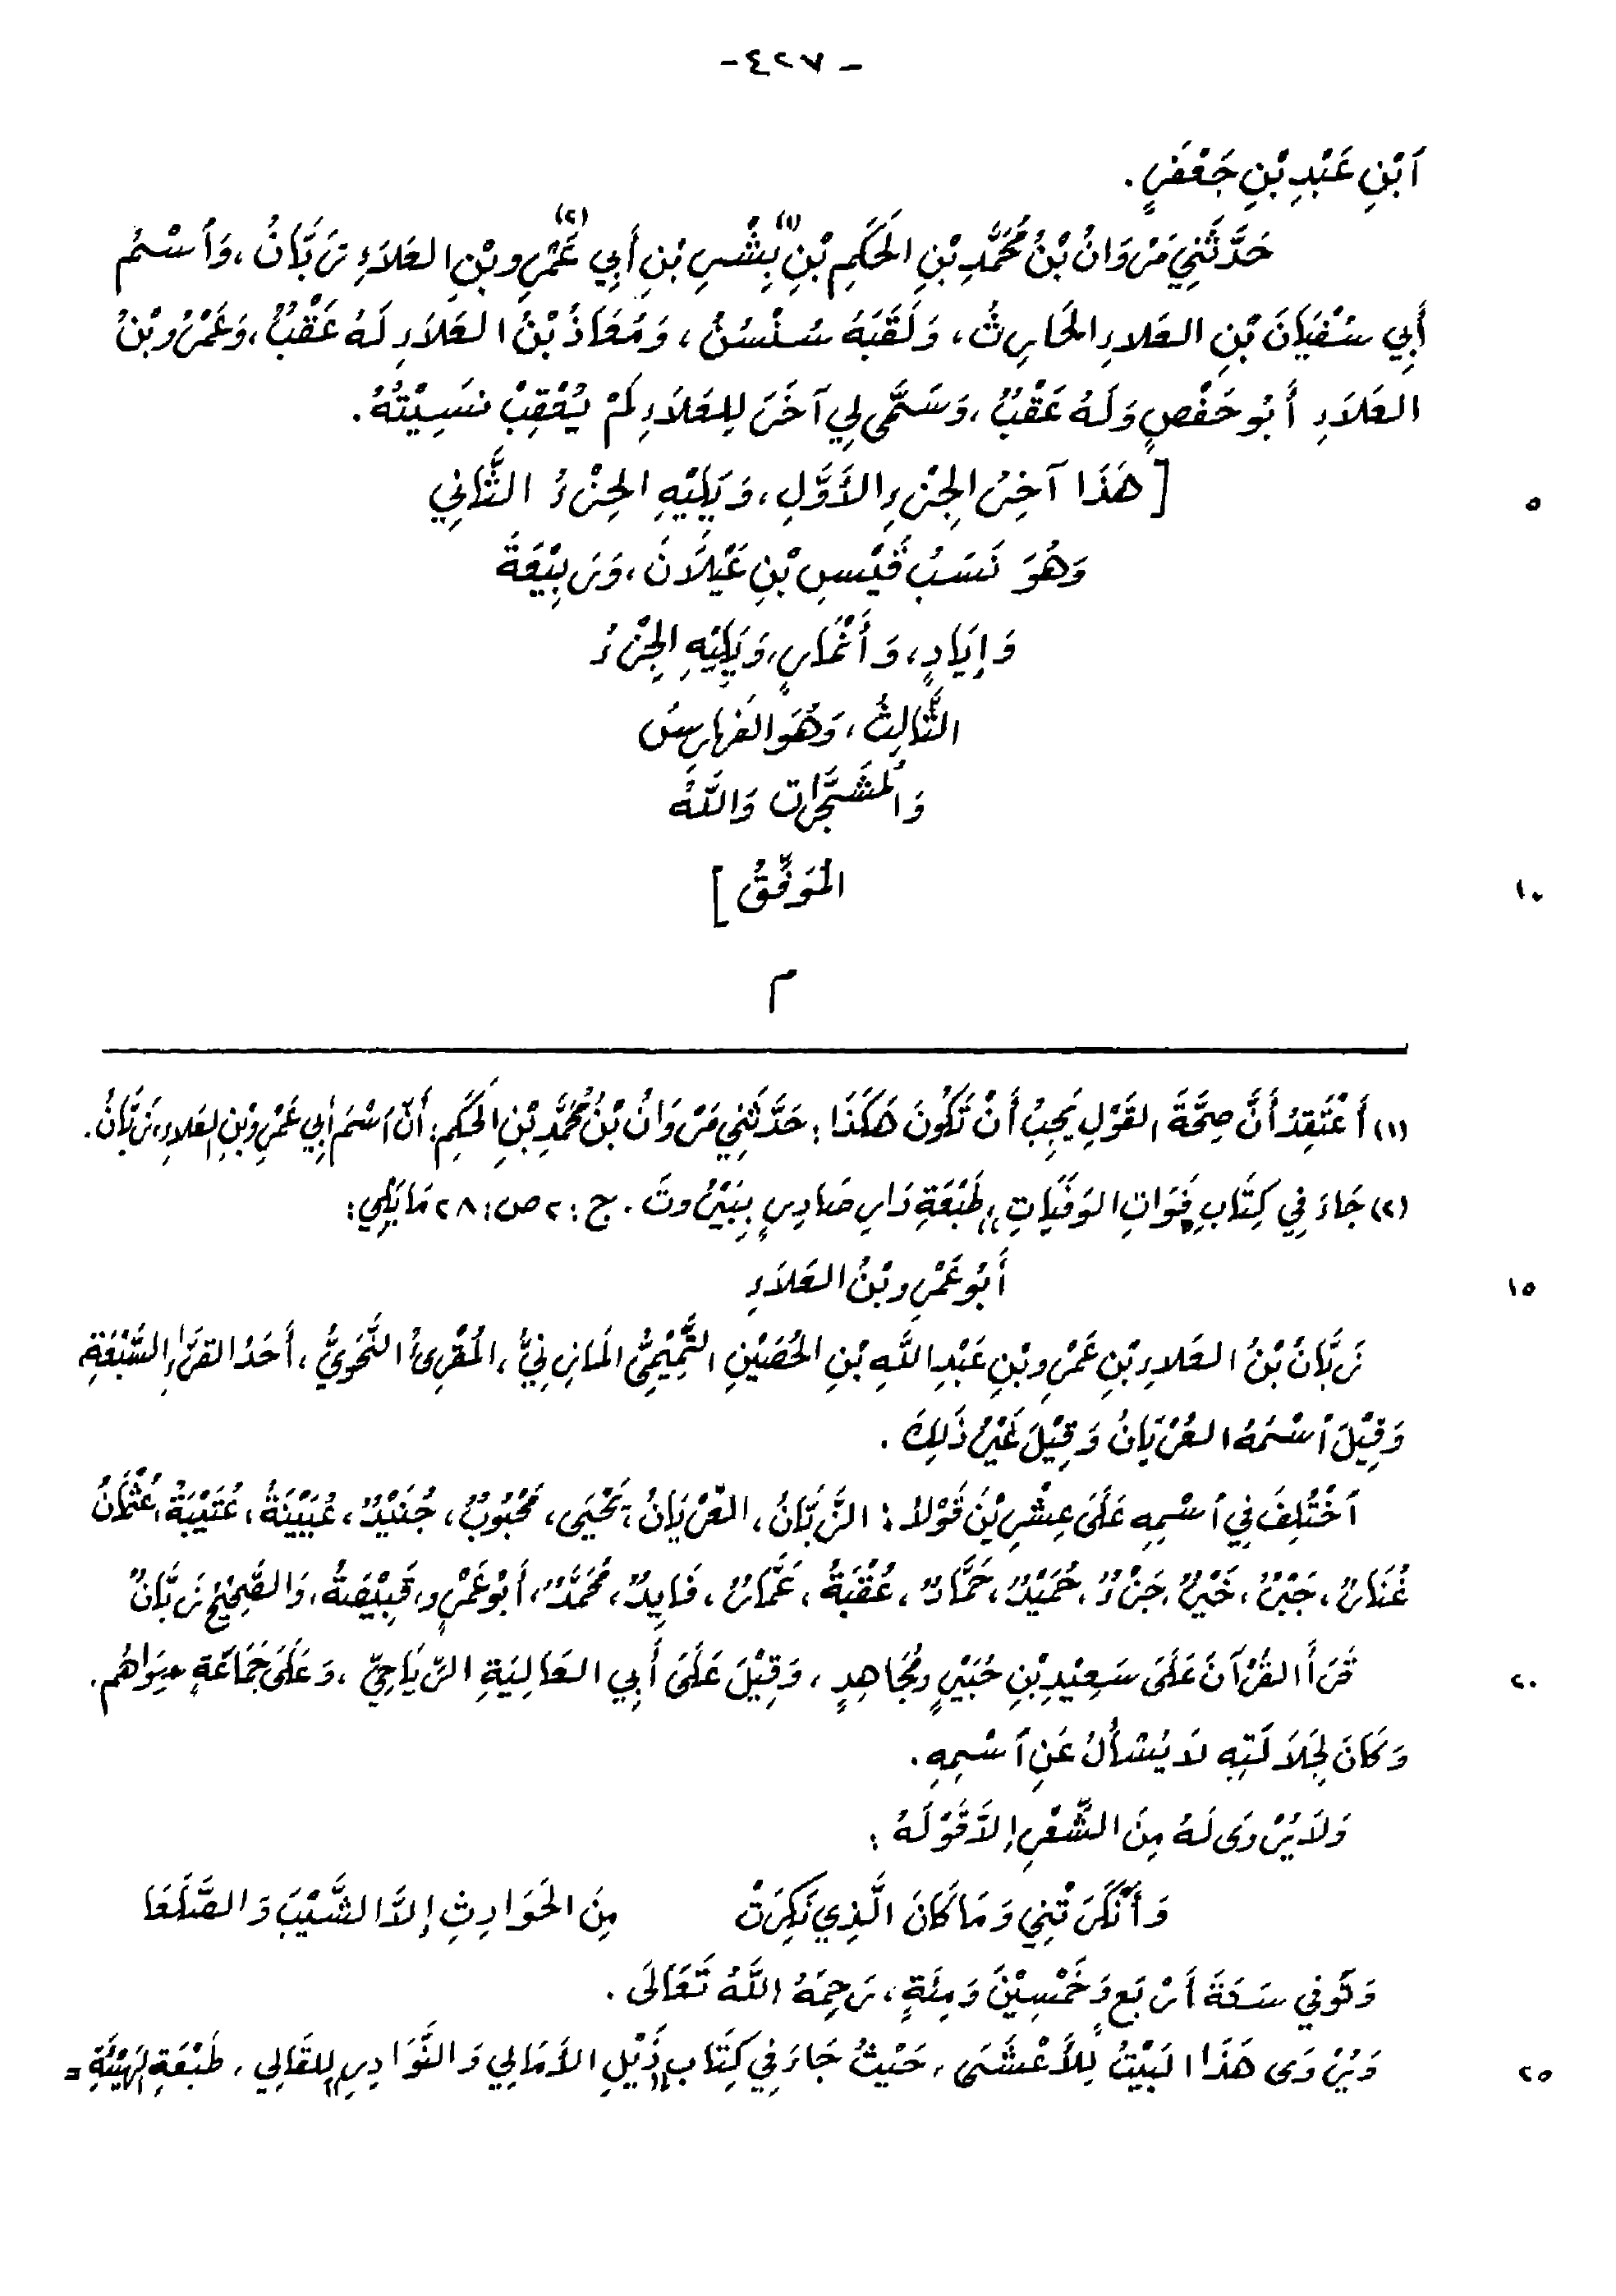 - ٤٢٧ -
ٱبْنِ عَبْدِ بْنِ جَعْفَرٍ .
حَدَّثَنِي مَرْوَانُ بْنُ مُحَمَّدِ بْنِ الحَكَمِ بْنِ (١) بِشْرِ بْنِ أَبِي عَمْرِو (٢) بْنِ العَلَاءِ زَبَّانُ ، وَٱسْمُ
أَبِي سُفْيَانَ بْنِ العَلاءِ الحَارِثُ ، وَلَقَبَهُ سُنْسُنُ ، وَمُعَاذُ بْنُ العَلَاءِ لَهُ عَقْبٌ ، وَعَمْرُو بْنُ
العَلَاءِ أَبُو حَفْصٍ وَلَهُ عَقْبٌ ، وَسَمَّى لِي آخَرَ لِلعَلَاءِ لَمْ يُعْقِبْ نَسَيْتُهُ .
[ هَذَا آخِرُ الجِزْءِ الأَوَّلِ ، وَيَلِيْهِ الجِزْءُ الثَّانِي
٥
وَهُوَ نَسَبُ قَيْسِ بْنِ عَيْلَانَ ، وَرَبِيْعَةَ
وَإِيَادٍ ، وَأَنْمَارٍ ، وَيَلِيْهِ الجِزْءُ
الثَّالِثُ ، وَهُوَ الفَهَارِسُ
وَالمُشَجَّرَات وَاللَّهُ
المُوَفِّقُ ]
١٠
م
(١) أَعْتَقِدُ أَنَّ صِحَّةَ القَوْلِ يَجِبُ أَنْ تَكُونَ هَكَذَا : حَدَّثَنِي مَرْوَانُ بْنُ مُحَمَّدِ بْنِ الحَكَمِ : أَنَّ ٱسْمَ أَبِي عَمْرِو بْنِ العَلاءِ زَبَّانُ .
(٢) جَاءَ فِي كِتَابِ ,,فَوَاتِ الوَفَيَاتِ,, طَبْعَةِ دَارِ صَادِرٍ بِبَيْرُوتَ . ج : ٢ ص : ٢٨ مَا يَلِي :
أَبُو عَمْرِو بْنُ العَلَاءِ
١٥
زَبَّانُ بْنُ العَلاءِ بْنِ عَمْرِو بْنِ عَبْدِ اللَّهِ بْنِ الحُصَيْنِ التَّمِيْمِيُّ المَازِنِيُّ ، المُقْرِئُ النَّحَوِيُّ ، أَحَدُ القُرَّاءِ السَّبْعَةِ
وَقِيْلَ ٱسْمُهُ العُرْيَانُ وَقِيْلَ غَيْرُ ذَلِكَ .
ٱخْتُلِفَ فِي ٱسْمِهِ عَلَى عِشْرِيْنَ قَوْلاً : الزَّبَّانُ ، العُرْيَانُ ، يَحْيَى ، مَحْبُوبٌ ، جُنَيْدٌ ، عُيَيْنَةُ ، عُتَيْبَةُ ، عُثْمَانُ
غُنَارٌ ، جَبْرٌ ، خَيْرٌ ، جَزْءٌ ، حُمَيْدٌ ، حَمَّادٌ ، عُقْبَةُ ، عَمَّارٌ ، فَايِدٌ ، مُحَمَّدٌ ، أَبُو عَمْرٍو ، قَبِيْصَةُ ، وَالصَّحِيْحُ زَبَّانٌ
قَرَأَ القُرْآنَ عَلَى سَعِيْدِ بْنِ جُبَيْرٍ وَمُجَاهِدٍ ، وَقِيْلَ عَلَى أَبِي العَالِيَةِ الرِّيَاحِيِّ ، وَعَلَى جَمَاعَةٍ سِوَاهُم .
٢٠
وَكَانَ لِجَلَالَتِهِ لَا يُسْأَلُ عَنِ ٱسْمِهِ .
وَلَا يُرْوَى لَهُ مِنَ الشِّعْرِ إِلَّا قَوْلَهُ :
وَأَنْكَرَتْنِي وَمَا كَانَ الَّذِي نَكِرَتْ مِنَ الحَوَادِثِ إِلَّا الشَّيْبَ وَالصَّلَعَا
وَتُوُفِي سَنَةَ أَرْبَعٍ وَخَمْسِيْنَ وَمِئَةٍ ، رَحِمَهُ اللَّهُ تَعَالَى .
وَيُرْوَى هَذَا البَيْتُ لِلأَعْشَى ، حَيْثُ جَاءَ فِي كِتَابِ ,,ذَيْلِ الأَمَالِي وَالنَّوَادِرِ,, لِلقَالِي ، طَبْعَةِ الهَيْئَةِ =
٢٥